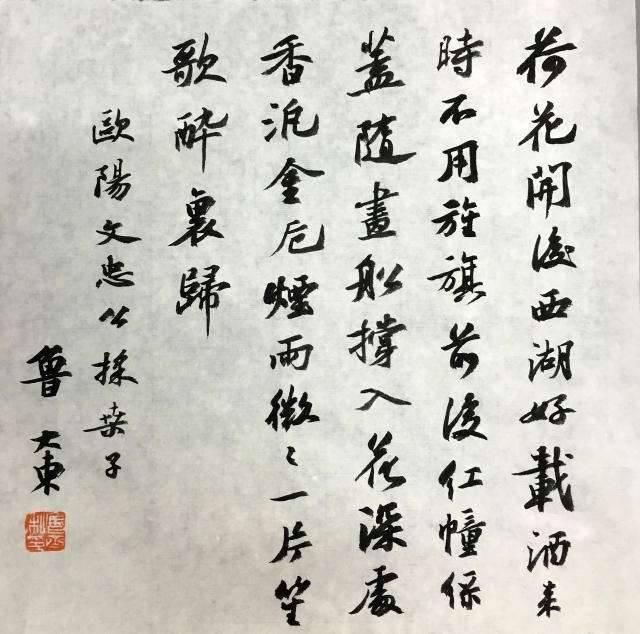 荷花開後西湖好載酒来
時不用旌旗前後紅幢綠
蓋隨畫船撐入花深處
香泛金卮煙雨微々一片笙
歌醉裏歸
歐陽文忠公採桑子
魯大東